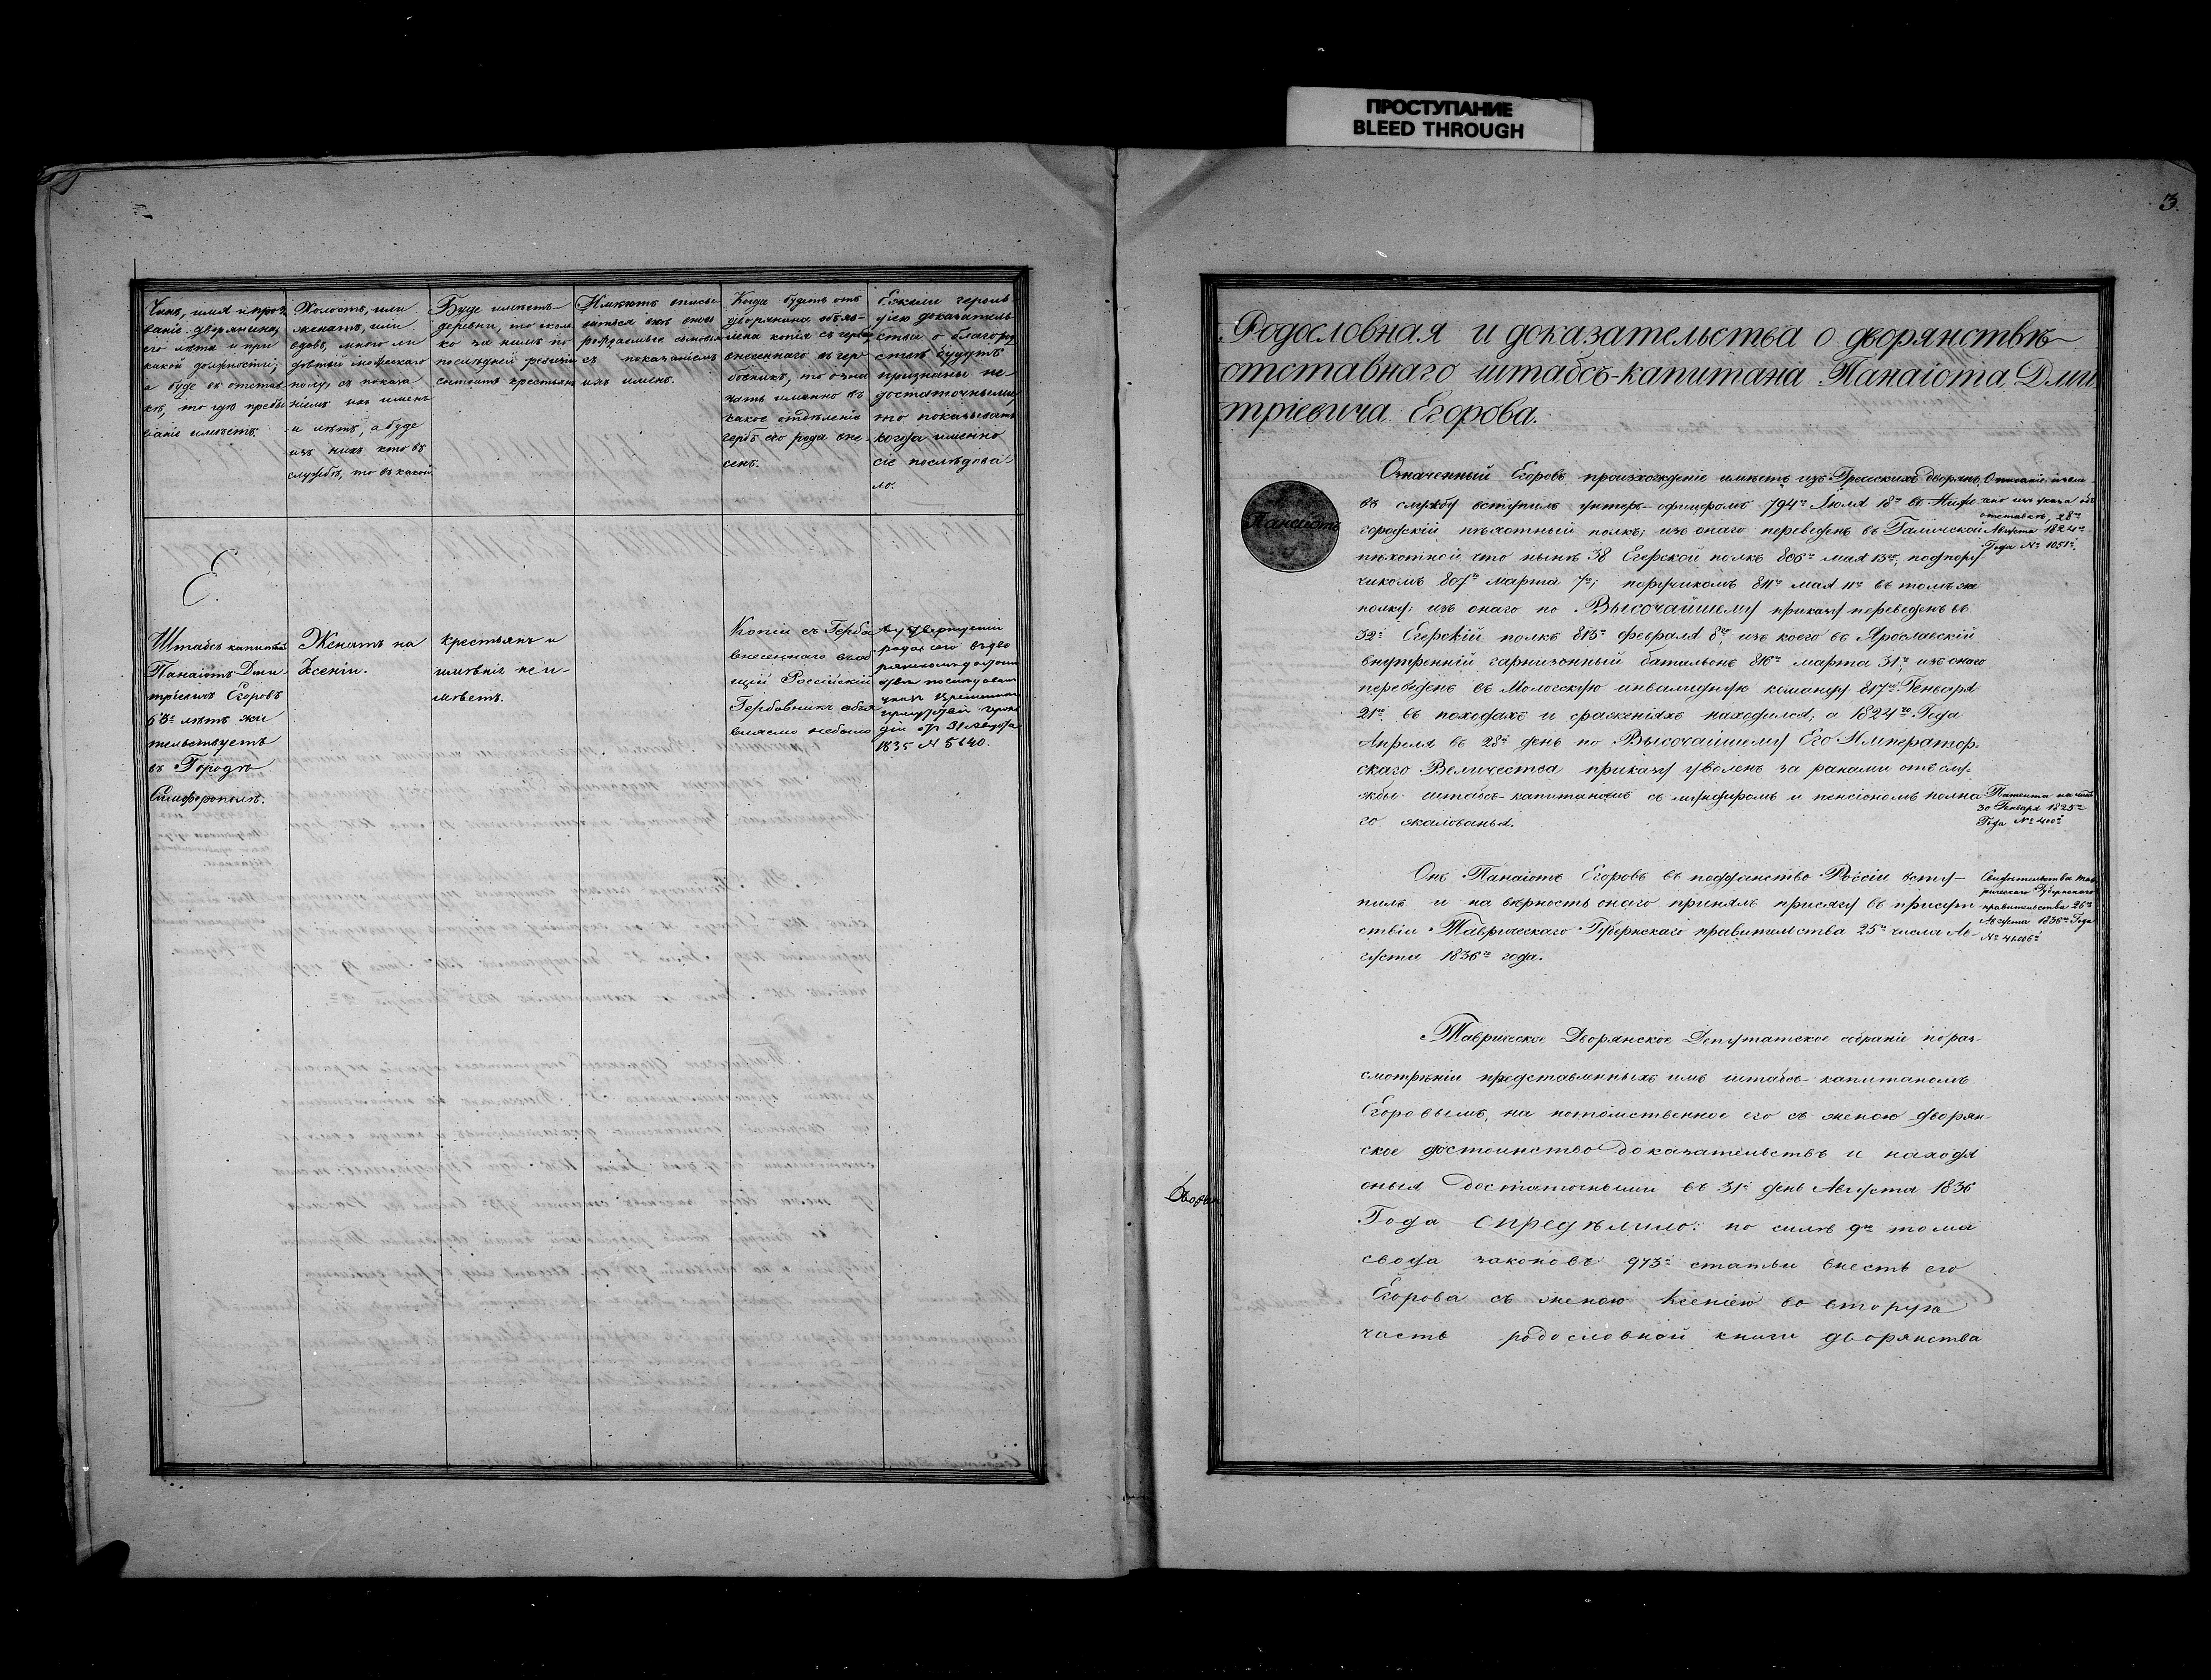 ПРОСТУПАНИЕ
BLEED THROUGH
3.
Чинъ, имя и проз-
ваніе дворянина,
его лѣта и при
какой должности;
а буде въ отстав-
кѣ, то гдѣ пребы
ваніе имѣетъ.
Холостъ, или
женатъ, или
вдовъ, много ли
дѣтей мужескаго
полу, съ показа
ніемъ ихъ именъ
и лѣтъ, а буде
изъ нихъ кто въ
службѣ, то въ какой
Буде имѣетъ
деревни, то сколь
ко за нимъ по
послѣдней ревизіи
состоитъ крестьянъ
рождаемые сыновья
съ показаніемъ
ихъ именъ.
Когда будетъ отъ
дворянина объяв-
лена копія съ герба
внесеннаго въ гер
бовникъ, то озна
чать именно въ
какое отдѣленіе
гербъ его рода вне-
сенъ.
Ежели героль-
діею доказатель
ства о благород
ствѣ будутъ
признаны не
достаточными
то показывать
когда именно
сіе послѣдова-
ло.
Е.
Штабсъ капитанъ
Панаіотъ Дми-
тріевичъ Егоровъ
63 лѣтъ жи
тельствуетъ
въ Городѣ
Симферополѣ.
Женатъ на
Ксеніи.
крестьянъ и
имѣнія не и-
мѣетъ.
Копіи съ Герба
внесеннаго въ об
щій Россійскій
Гербовникъ объя
вляемо небыло
рода сего въ дво
рянскомъ достоин
ствѣ послѣдовалъ
указъ
31 Августа
1835 N 5640.
Родословная и доказательства о дворянствѣ
отставнаго штабсъ-капитана Панаіота Дми
тріевича Егорова.
Панаіотъ
Означенный Егоровъ произхожденіе имѣетъ изъ Греческихъ Дворянъ,
въ службу вступилъ унтеръ-офицеромъ 794го Іюля 18го въ Ниже
городскій пѣхотный полкъ; изъ онаго переведенъ въ Галичской
пѣхотной что нынѣ 38 Егерской полкъ 806го мая 13го, подпору
чикомъ 807го марта 7го; поручикомъ 811го мая 11го въ томъ же
полку; изъ онаго по Высочайшему приказу переведенъ въ
32й Егерскій полкъ 815го февраля 8го, изъ коего въ Ярославскій
внутренній гарнизонный баталіонъ 816го марта 31го, изъ онаго
переведенъ въ Мологскую инвалидную команду 817го Генваря
21го, въ походахъ и сраженіяхъ находился; а 1824го Года
Апреля въ 28й день по Высочайшему Его Император-
скаго Величества приказу уволенъ за ранами отъ слу-
жбы штабсъ-капитаномъ съ мундиромъ и пенсіономъ полна
го жалованья.
отставкѣ, 28го
Августа 1824го
Года № 1051й.
30 Генваря 1825го
Года № 400й
Онъ Панаіотъ Егоровъ въ подданство Россіи всту-
пилъ и на вѣрность онаго принялъ присягу въ присут
ствіи Таврическаго Губернскаго правительства 25го числа Ав-
густа 1836го года.
Свидетельства тав
рическаго Губернскаго
правительства 26го
Августа 1836го Года
Таврическое Дворянское Депутатское собраніе по раз-
смотрѣніи представленныхъ имъ штабсъ-капитаномъ
Егоровымъ, на потомственное его съ женою дворян-
ское достоинство доказательствъ и находя
оныя достаточными въ 31й день Августа 1836
Года опредѣлило: по силѣ 9го тома
свода законовъ 973й статьи внесть его
Егорова съ женою Ксеніею во вторую
часть родословной книги дворянства